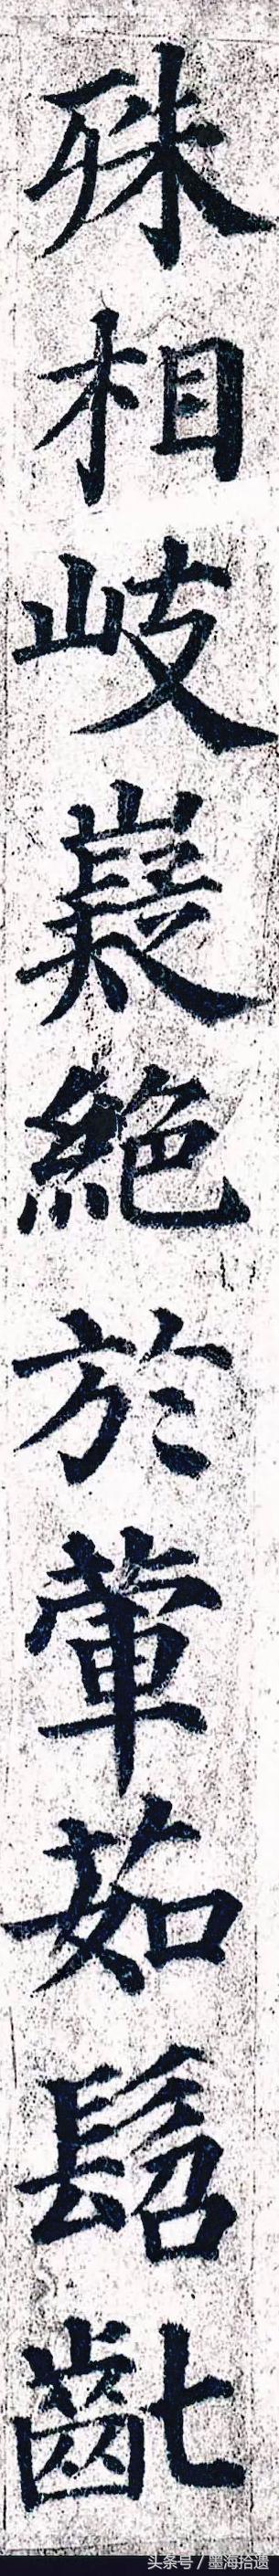 殊相岐嶷絕於葷茹髫齓
头条号 / 墨海拾遗